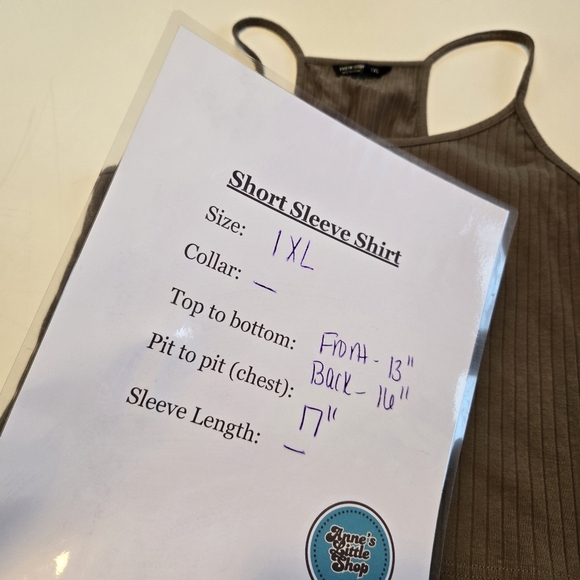 Short Sleeve Shirt
Size: 1XL
Collar: —
Top to bottom: Front - 13"
Back - 16"
Pit to pit (chest): 17"
Sleeve Length: —
Anne's
Little
Shop
1XL